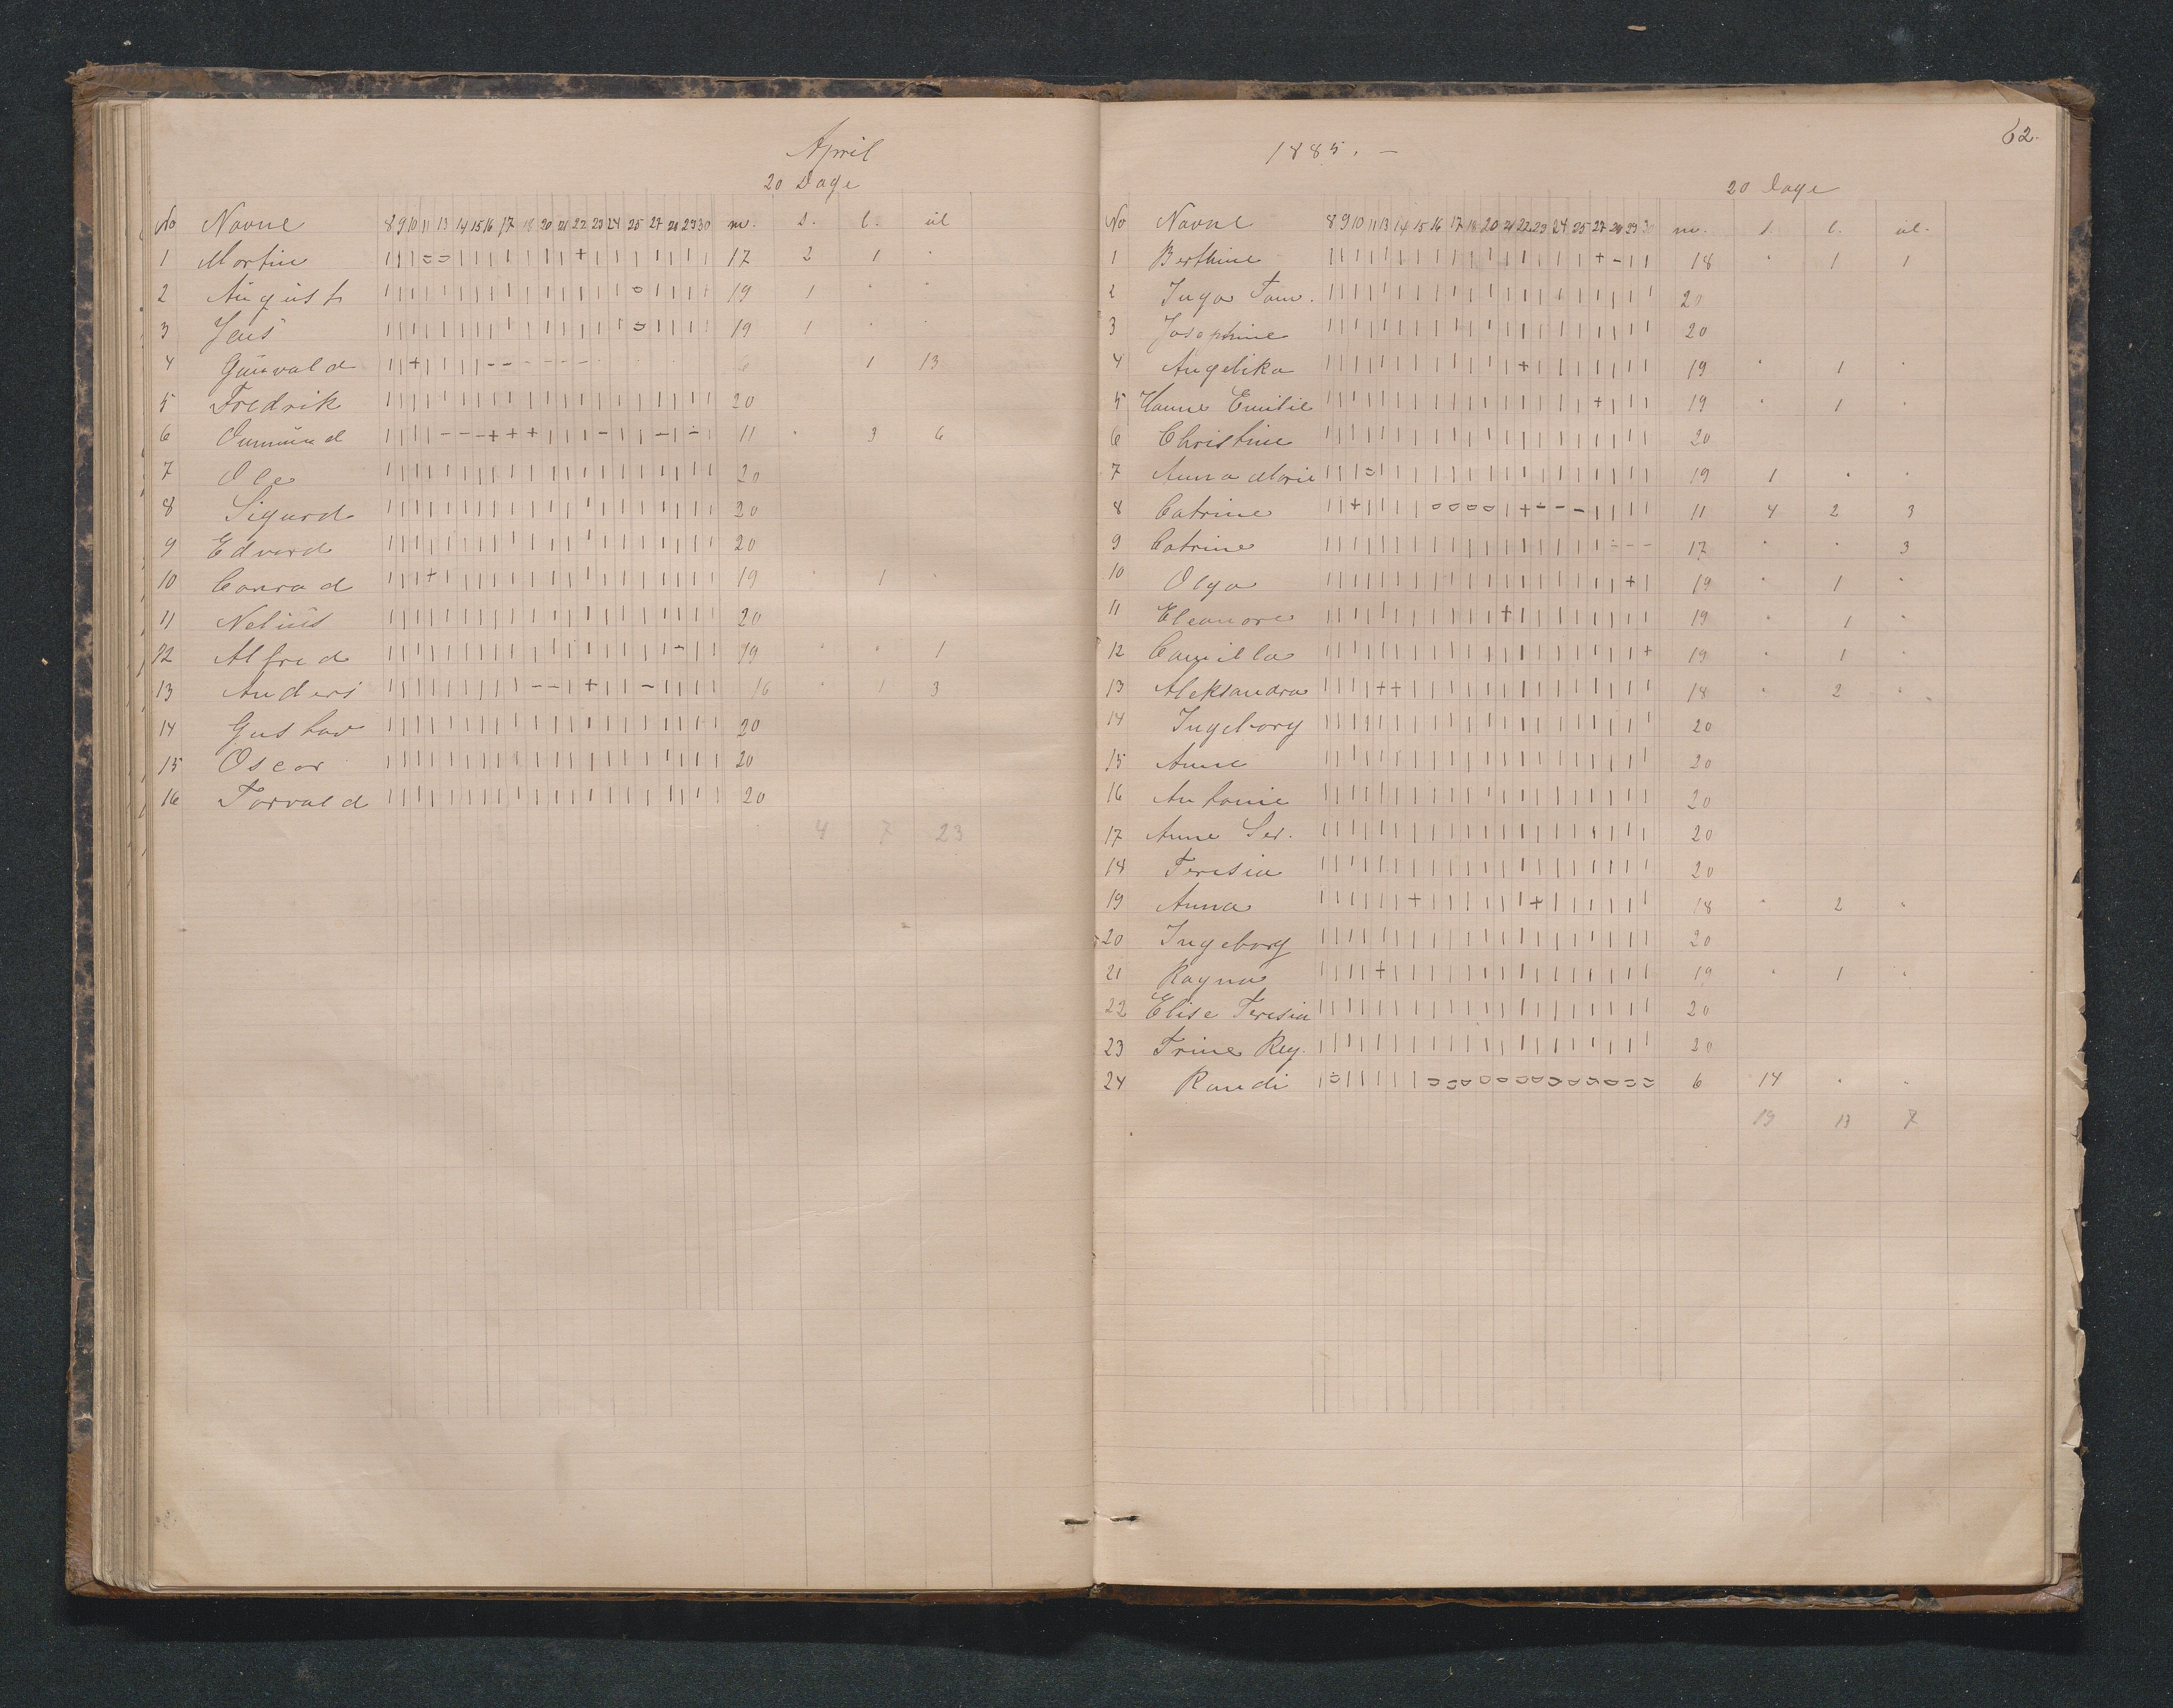 April
20 Dage
No Navne 8 9 10 11 13 14 15 16 17 18 20 21 22 23 24 25 27 28 29 30 m. s. l. ul
1 Martin | | | = = | | | | | | | + | | | | | | | 17 2 1 "
2 August | | | | | | | | | | | | | | | = | | | | 19 1 " "
3 Jens | | | | | | | | | | | | | | | = | | | | 19 1 " "
4 Gunvald | | + | | | | - - - - - - 6 1 13
5 Fredrik | | | | | | | | | | | | | | | | | | | | 20
6 Gunmund | | | | - - - + + + | | | - | | - | - | 11 " 3 6
7 Ole | | | | | | | | | | | | | | | | | | | | 20
8 Sigurd | | | | | | | | | | | | | | | | | | | | 20
9 Edvard | | | | | | | | | | | | | | | | | | | | 20
10 Conrad | | | + | | | | | | | | | | | | | | | | 19 " 1 "
11 Nelius | | | | | | | | | | | | | | | | | | | | 20
12 Alfred | | | | | | | | | | | | | | | | | - | | 19 " " 1
13 Anders | | | | | | | | | - - | + | | - | | | | 16 " 1 3
14 Gustav | | | | | | | | | | | | | | | | | | | | 20
15 Oscar | | | | | | | | | | | | | | | | | | | | 20
16 Torvald | | | | | | | | | | | | | | | | | | | | 20
4 7 23
62.
1885. –
20 Dage
No Navne 8 9 10 11 13 14 15 16 17 18 20 21 22 23 24 25 27 28 29 30 m. s. l. ul.
1 Berthine | | | | | | | | | | | | | | | | + - | | 18 " 1 1
2 Inga Tom. | | | | | | | | | | | | | | | | | | | | 20
3 Josephine | | | | | | | | | | | | | | | | | | | | 20
4 Angelika | | | | | | | | | | | | + | | | | | | | 19 " 1 "
5 Hanne Emilie | | | | | | | | | | | | | | | | + | | | 19 " 1 "
6 Christine | | | | | | | | | | | | | | | | | | | | 20
7 Anna Marie | | | = | | | | | | | | | | | | | | | | 19 1 " "
8 Catrine | | + | | | | = = = = | + - - - | | | | 11 4 2 3
9 Catrine | | | | | | | | | | | | | | | | | - - - 17 " " 3
10 Olga | | | | | | | | | | | | | | | | | | + | 19 " 1 "
11 Eleanore | | | | | | | | | | | + | | | | | | | | 19 " 1 "
12 Camilla | | | | | | | | | | | | | | | | | | | + 19 " 1 "
13 Aleksandra | | | | + + | | | | | | | | | | | | | | 18 " 2 "
14 Ingeborg | | | | | | | | | | | | | | | | | | | | 20
15 Anne | | | | | | | | | | | | | | | | | | | | 20
16 Antonie | | | | | | | | | | | | | | | | | | | | 20
17 Anne Ser. | | | | | | | | | | | | | | | | | | | | 20
18 Teresia | | | | | | | | | | | | | | | | | | | | 20
19 Anna | | | | | | + | | | | | | + | | | | | | 18 " 2 "
20 Ingeborg | | | | | | | | | | | | | | | | | | | | 20
21 Ragna | | | | + | | | | | | | | | | | | | | | 19 " 1 "
22 Elise Teresia | | | | | | | | | | | | | | | | | | | | 20
23 Trine Reg. | | | | | | | | | | | | | | | | | | | | 20
24 Randi | = | | | | | = = = = = = = = = = = = = 6 14 " "
19 13 7